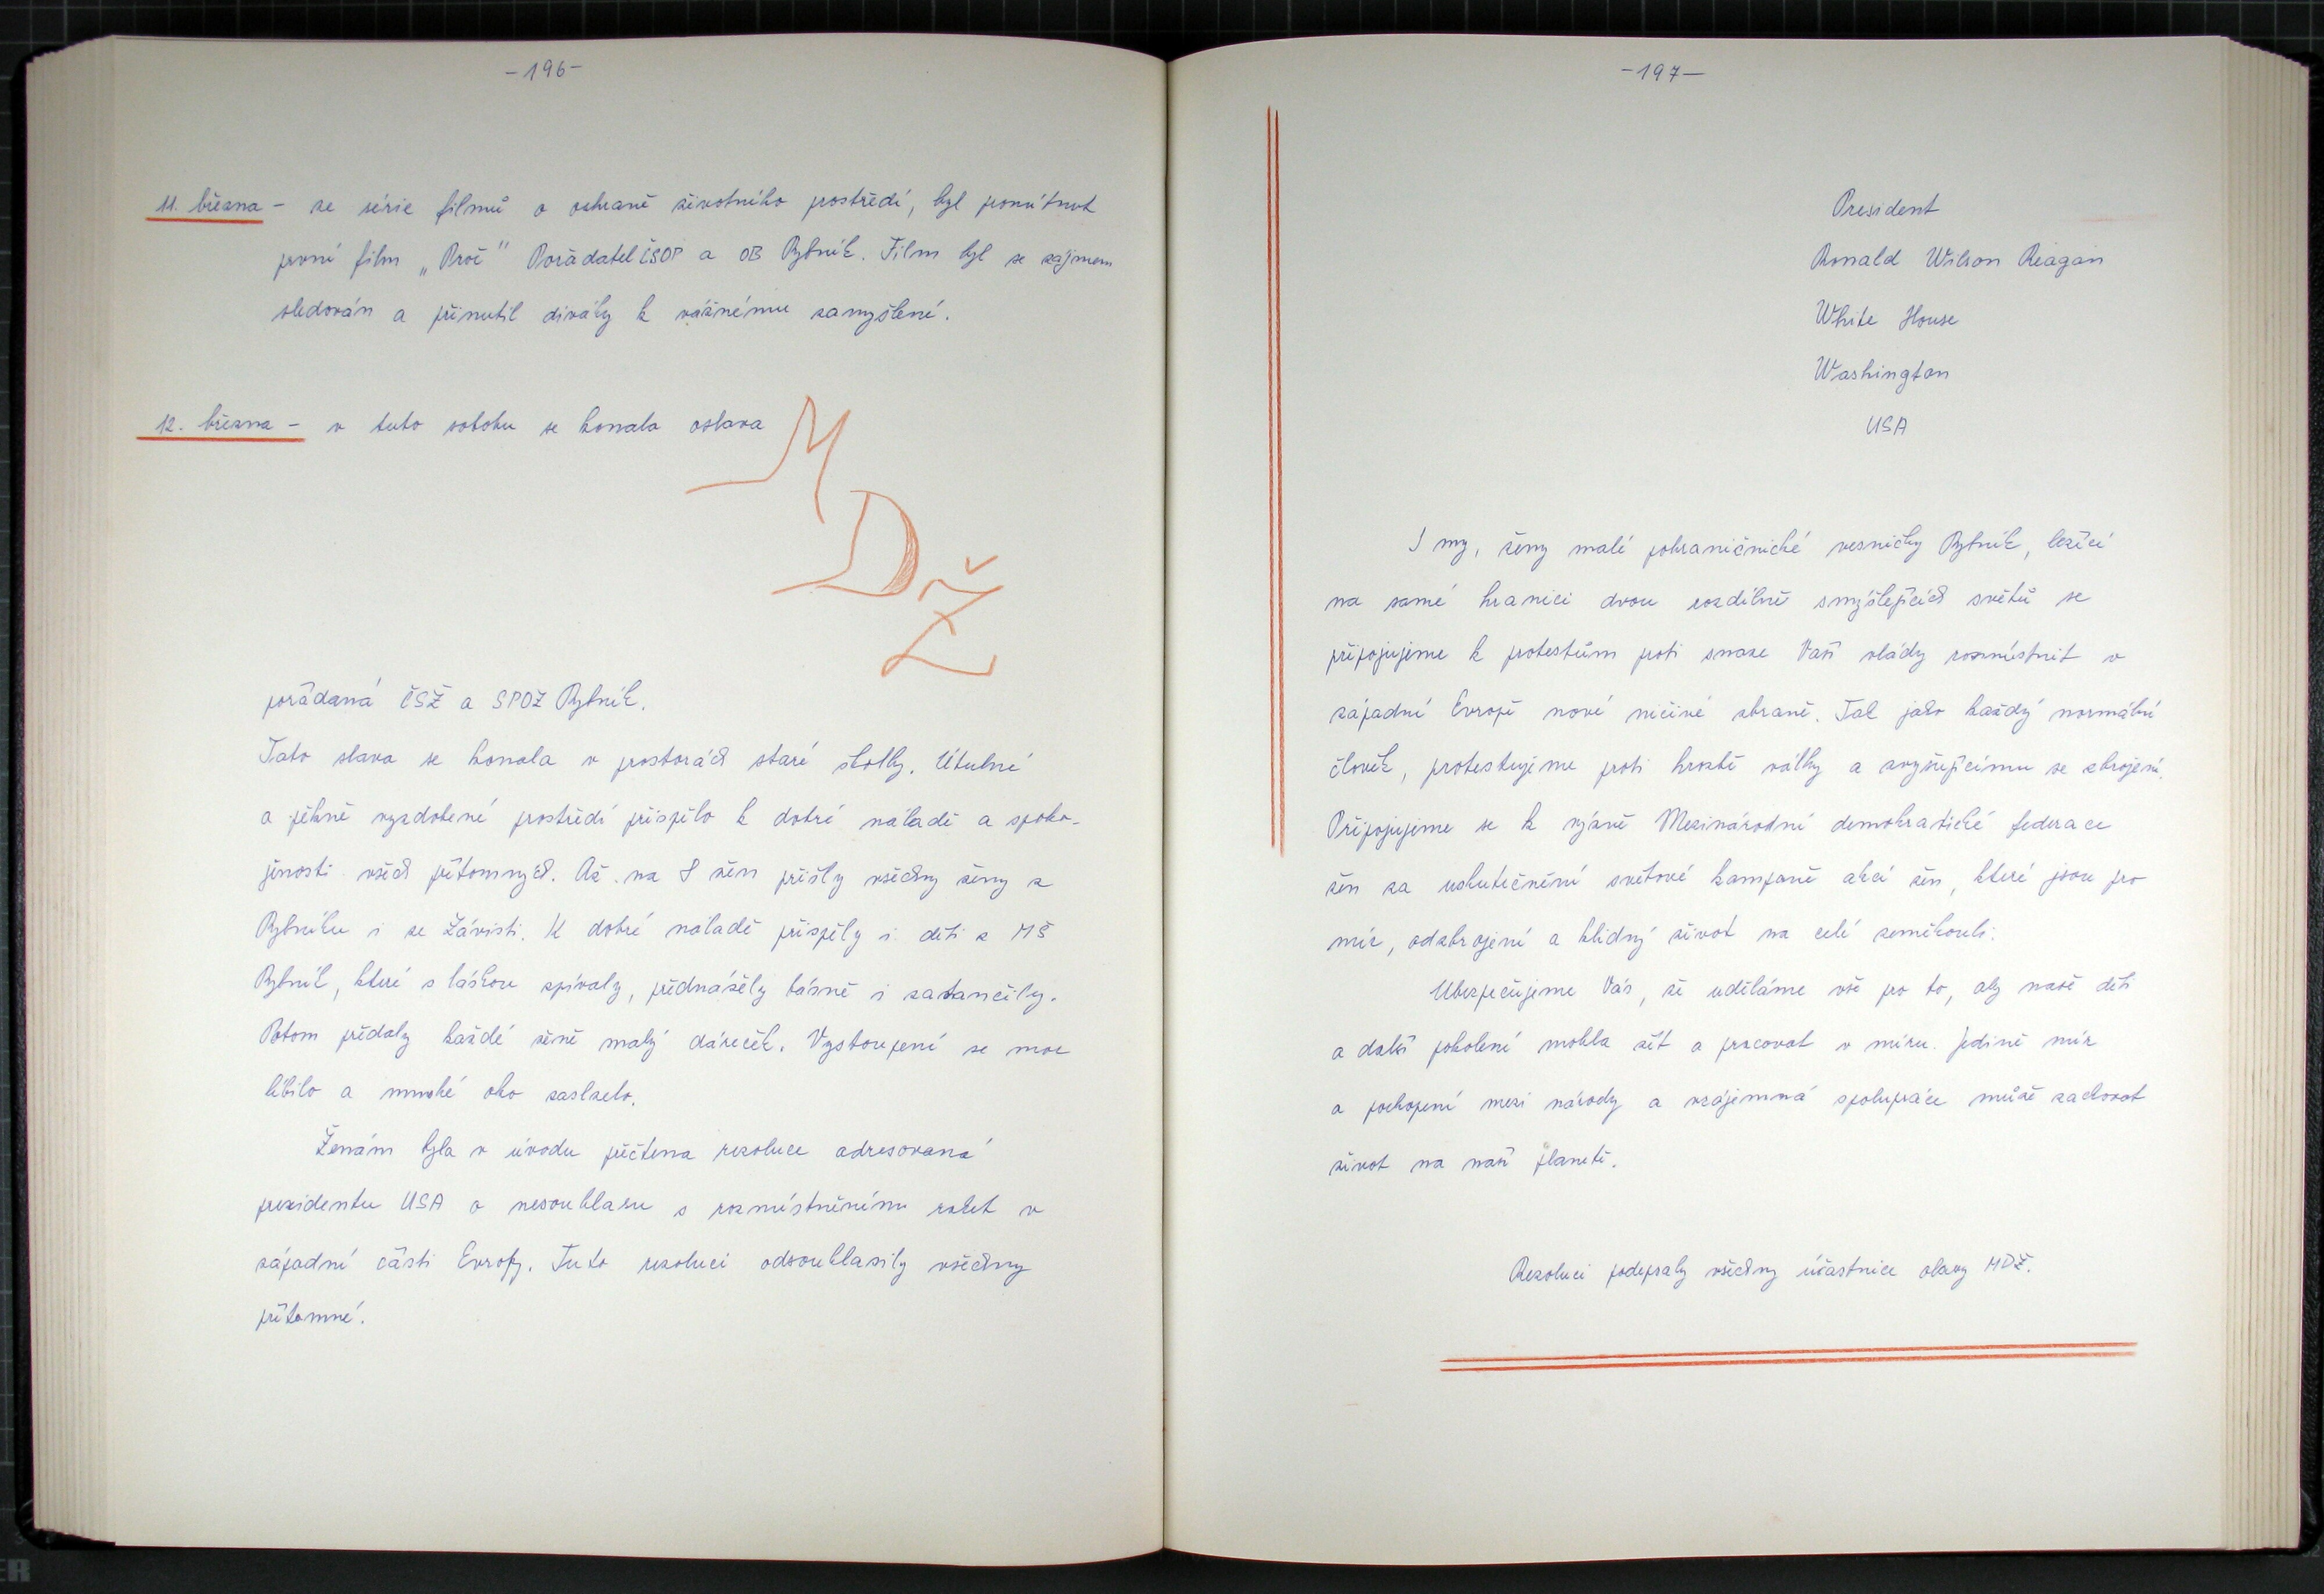 -196-
11. března - ze série filmů o ochraně životního prostředí, byl promítnut
první film „Proč" Pořádatel ČSOP a OB Rybník. Film byl se zájmem
sledován a přinutil diváky k vážnému zamyšlení.
12. března - v tuto sobotu se konala oslava
M
D
Ž
pořádaná ČSŽ a SPOZ Rybník.
Tato slava se konala v prostorách staré školky. Útulné
a pěkně vyzdobené prostředí přispělo k dobré náladě a spoko-
jenosti všech přítomných. Až na 8 žen přišly všechny ženy z
Rybníku i ze Závisti. K dobré náladě přispěly i děti z MŠ
Rybník, které s láskou zpívaly, přednášely básně i zatančily.
Potom předaly každé ženě malý dáreček. Vystoupení se moc
líbilo a mnohé oko zaslzelo.
Ženám byla v úvodu přečtena rezoluce adresovaná
prezidentu USA o nesouhlasu s rozmístněnímu raket v
západní části Evropy. Tuto rezoluci odsouhlasily všechny
přítomné.
-197-
President
Ronald Wilson Reagan
White House
Washington
USA
I my, ženy malé pohraničnické vesničky Rybník, ležící
na samé hranici dvou rozdílně smýšlejících světů se
připojujeme k protestům proti snaze Vaší vlády rozmístnit v
západní Evropě nové ničivé zbraně. Tak jako každý normální
člověk, protestujeme proti hrozbě války a zvyšujícímu se zbrojení.
Připojujeme se k výzvě Mezinárodní demokratické federace
žen za uskutečnění světové kampaně akcí žen, které jsou pro
mír, odzbrojení a klidný život na celé zeměkouli.
Ubezpečujeme Vás, že uděláme vše pro to, aby naše děti
a další pokolení mohla žít a pracovat v míru. Jedině mír
a pochopení mezi národy a vzájemná spolupráce může zachovat
život na naší planetě.
Rezoluci podepsaly všechny účastnice olavy MDŽ.